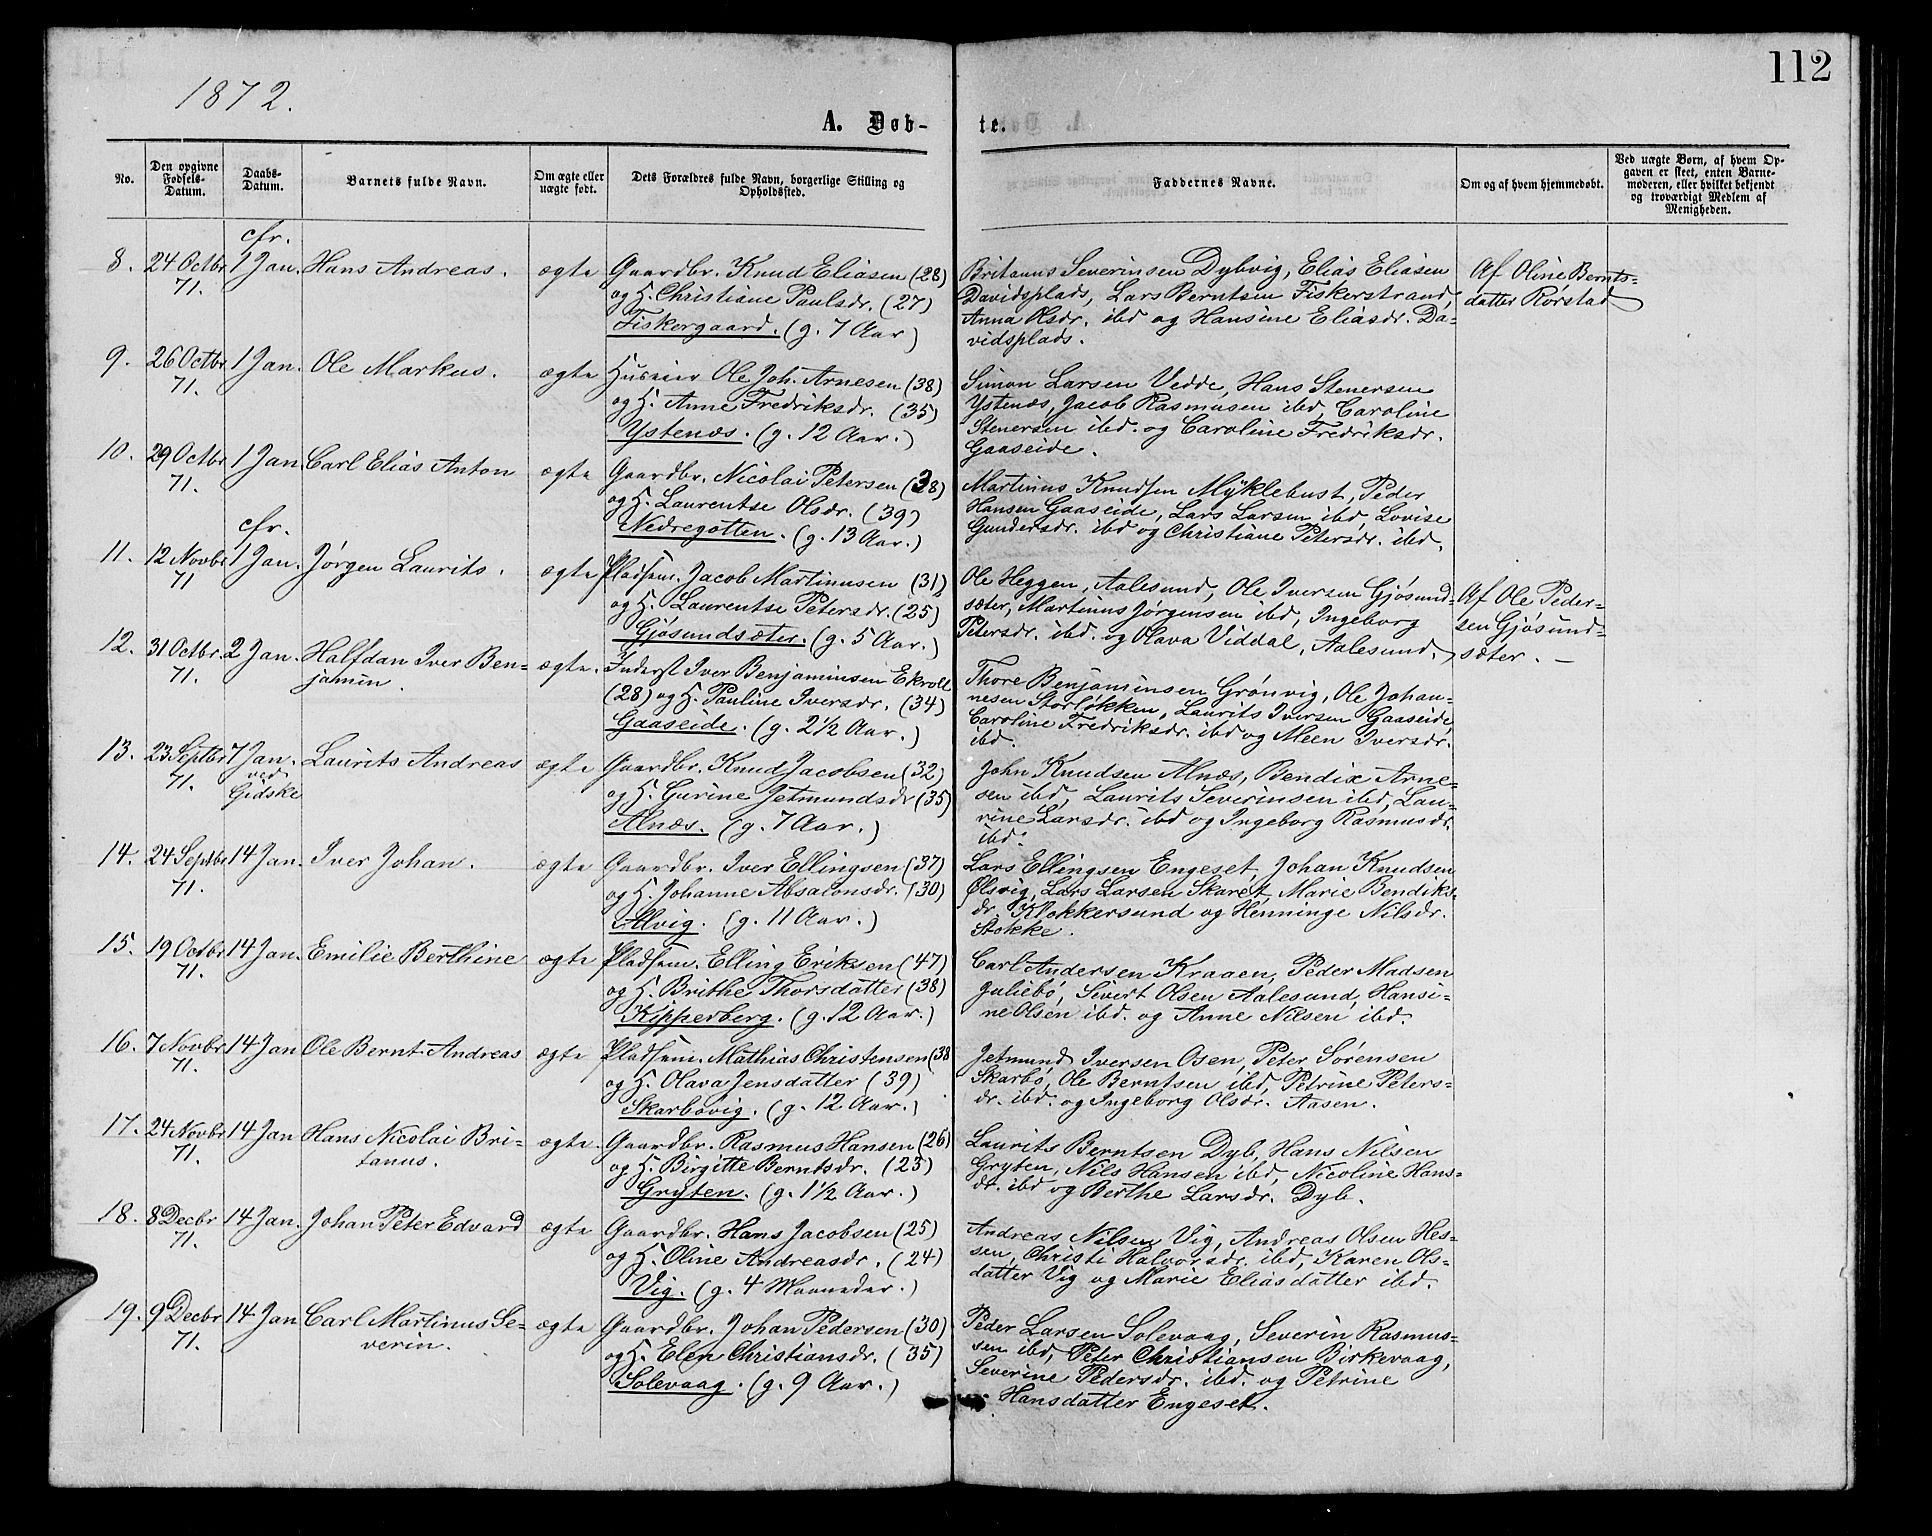 112
1872.
A. Døb-
te.
No.
Den opgivne
Fødsels-
Datum.
Daabs-
Datum.
Barnets fulde Navn.
Om ægte eller
uægte født.
Dets Forældres fulde Navn, borgerlige Stilling og
Opholdssted.
Faddernes Navne.
Om og af hvem hjemmedøbt.
Ved uægte Børn, af hvem Op-
gaven er skeet, enten Barne-
moderen, eller hvilket bekjendt
og troværdigt Medlem af
Menigheden.
cfr.
8. 24 Octbr 1 Jan. Hans Andreas. ægte Gaardbr. Knud Eliasen (28)
71. og H. Christiane Paulsdr. (27)
Fiskergaard. (g. 7 Aar)
Britanus Severinsen Dybvig, Elias Eliasen
Davidsplads, Lars Berntsen Fiskerstrand,
Anna Olsdr. ibd og Hansine Eliasdr. Da-
vidsplads.
Af Oline Bernts-
datter Rørstad
9. 26 Octbr 1 Jan. Ole Markus. ægte Huseier Ole Joh. Arnesen (38)
71. og H. Anne Fredriksdr. (35)
Ystenæs. (g. 12 Aar.)
Simon Larsen Vedde, Hans Stenersen
Ystenæs, Jacob Rasmusen ibd, Caroline
Stenersen ibd. og Caroline Fredriksdr.
Gaaseide.
10. 29 Octbr 1 Jan Carl Elias Anton ægte Gaardbr. Nicolai Petersen (38)
71. og H. Laurentse Olsdr. (39)
Nedregotten. (g. 13 Aar.)
Martinus Knudsen Myklebust, Peder
Hansen Gaaseide, Lars Larsen ibd, Lovise
Gundersdr. ibd og Christiane Petersdr. ibd.
cfr.
11. 12 Novbr 1 Jan. Jørgen Laurits. ægte Pladsm. Jacob Martinusen (31)
71 og H. Laurentse Petersdr. (25)
Gjøsundsæter. (g. 5 Aar.)
Ole Heggen, Aalesund, Ole Iversen Gjøsund-
sæter, Martinus Jørgensen ibd, Ingeborg
Petersdr. ibd. og Olava Viddal, Aalesund.
Af Ole Peder-
sen Gjøsund-
sæter. —
12. 31 Octbr. 2 Jan. Halfdan Iver Ben- ægte. Inderst Iver Benjaminsen Ekroll
71. jamin. (28) og H. Pauline Iversdr. (34)
Gaaseide. (g. 2½ Aar.)
Thore Benjaminsen Grønvig, Ole Johan-
nesen Storløkken, Laurits Iversen Gaaseide,
Caroline Fredriksdr. ibd og Meen Iversdr.
ibd.
13. 23 Septbr 7 Jan. Laurits Andreas ægte Gaardbr. Knud Jacobsen (32)
71. ved og H. Gurine Jetmundsdr (35)
Gidske Alnæs. (g. 7 Aar.)
John Knudsen Alnæs, Bendix Arne-
sen ibd, Laurits Severinsen ibd, Lau-
rine Larsdr. ibd og Ingeborg Rasmusdr.
ibd.
14. 24 Septbr 14 Jan. Iver Johan. ægte Gaardbr. Iver Ellingsen (37)
71. og H. Johanne Absalonsdr. (30)
Alvig. (g. 11 Aar.)
Lars Ellingsen Engeset, Johan Knudsen
Ølsvig, Lars Larsen Skaret, Marie Bendiks-
dr. Klokkersund og Henninge Nilsdr.
Stokke.
15. 19 Octbr 14 Jan. Emilie Berthine ægte Pladsm. Elling Eriksen (47)
71. og H. Brithe Thorsdatter (38)
Kipperberg. (g. 12 Aar.)
Carl Andersen Kraaen, Peder Madsen
Juliebø, Sivert Olsen Aalesund, Hansi-
ne Olsen ibd. og Anne Nilsen ibd.
16. 7 Novbr. 14 Jan Ole Bernt Andreas ægte Pladsm. Mathias Christensen (38
71. og H. Olava Jensdatter (39)
Skarbøvig. (g. 12 Aar.)
Jetmund Iversen Osen, Peter Sørensen
Skarbø, Ole Berntsen ibd, Petrine Peters-
dr. ibd. og Ingeborg Olsdr. Aasen.
17. 24 Novbr 14 Jan Hans Nicolai Bri- ægte. Gaardbr. Rasmus Hansen (26)
71. tanus. og H. Birgitte Berntsdr. (23)
Gryten. (g. 1½ Aar.)
Laurits Berntsen Dyb, Hans Nilsen
Gryten, Nils Hansen ibd, Nicoline Hans-
dr. ibd og Berthe Larsdr. Dyb.
18. 8 Decbr 14 Jan. Johan Peter Edvard ægte Gaardbr. Hans Jacobsen (25)
71. og H. Oline Andreasdr. (24)
Vig. (g. 4 Maaneder.)
Andreas Nilsen Vig, Andreas Olsen Hes-
sen, Christi Halvorsdr. ibd, Karen Ols-
datter Vig og Marie Eliasdatter ibd.
19. 9 Decbr 14 Jan Carl Martinus Se- ægte Gaardbr. Johan Pedersen (30)
71. verin. og H. Elen Christiansdr. (35)
Solevaag. (g. 9 Aar.)
Peder Larsen Solevaag, Severin Rasmus-
sen ibd, Peter Christiansen Birkevaag,
Severine Pedersdr. ibd. og Petrine
Hansdatter Engeset.